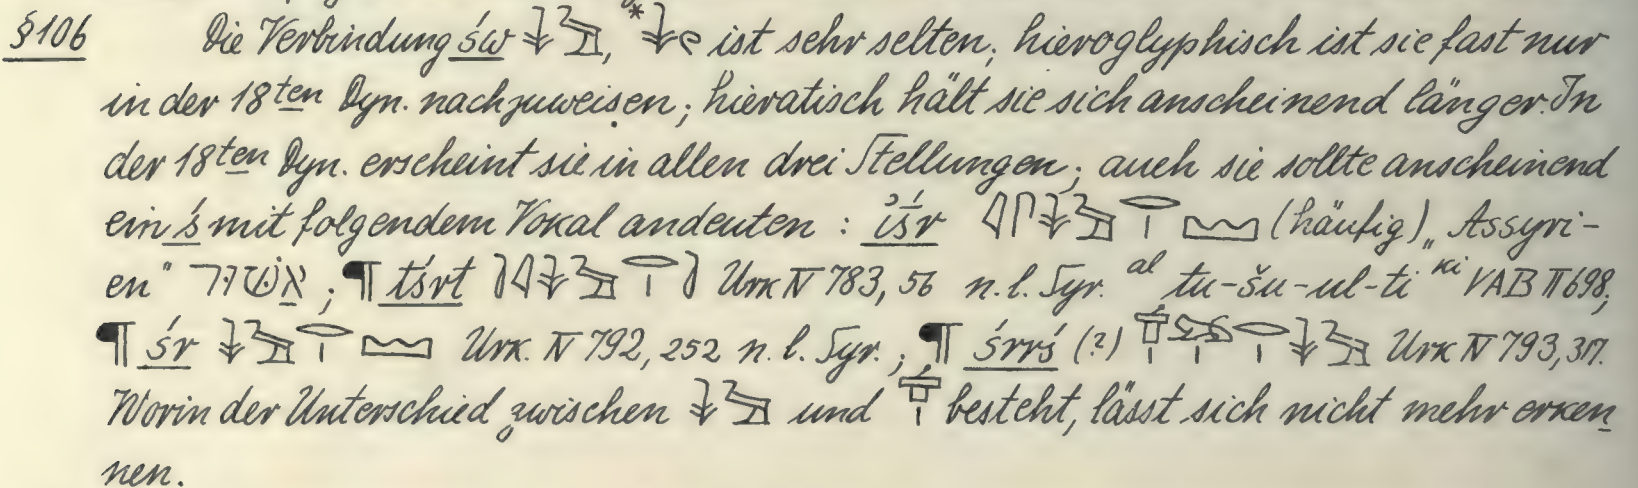 §106 Die Verbindung św 𓇓𓅱, *𓇓𓏲 ist sehr selten; hieroglyphisch ist sie fast nur
in der 18ten Dyn. nachzuweisen; hieratisch hält sie sich anscheinend länger. In
der 18ten Dyn. erscheint sie in allen drei Stellungen; auch sie sollte anscheinend
ein ś mit folgendem Vokal andeuten : iśr (häufig) „Assyri-
en" אַשּׁוּר ; ¶ tśrt Urk IV 783, 56 n. l. Syr. al tu-šu-ul-ti ki VAB II 698;
¶ śr Urk. IV 792, 252 n. l. Syr. ; ¶ śrrś (?) Urk IV 793, 317.
Worin der Unterschied zwischen und besteht, lässt sich nicht mehr erken
nen.